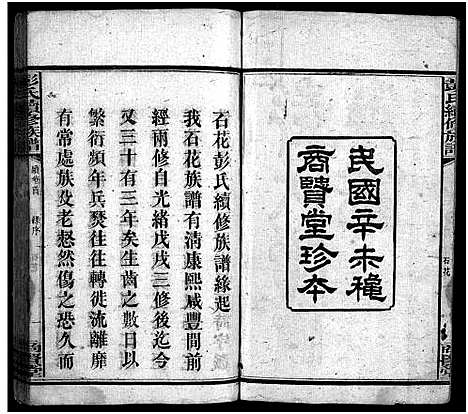 彭氏續修族譜
石花
民國辛未穐
商賢堂珍本
石花彭氏續修族譜緣起
我石花族譜有清康熙咸豐間前
經兩修自光緒戊戌三修後迄今
又三十有三年矣生齒之數日以
繁衍頻年兵燹往往轉徙流離靡
有常處族父老惄然傷之恐久而
彭氏續修族譜
續卷首
緣序
商賢堂